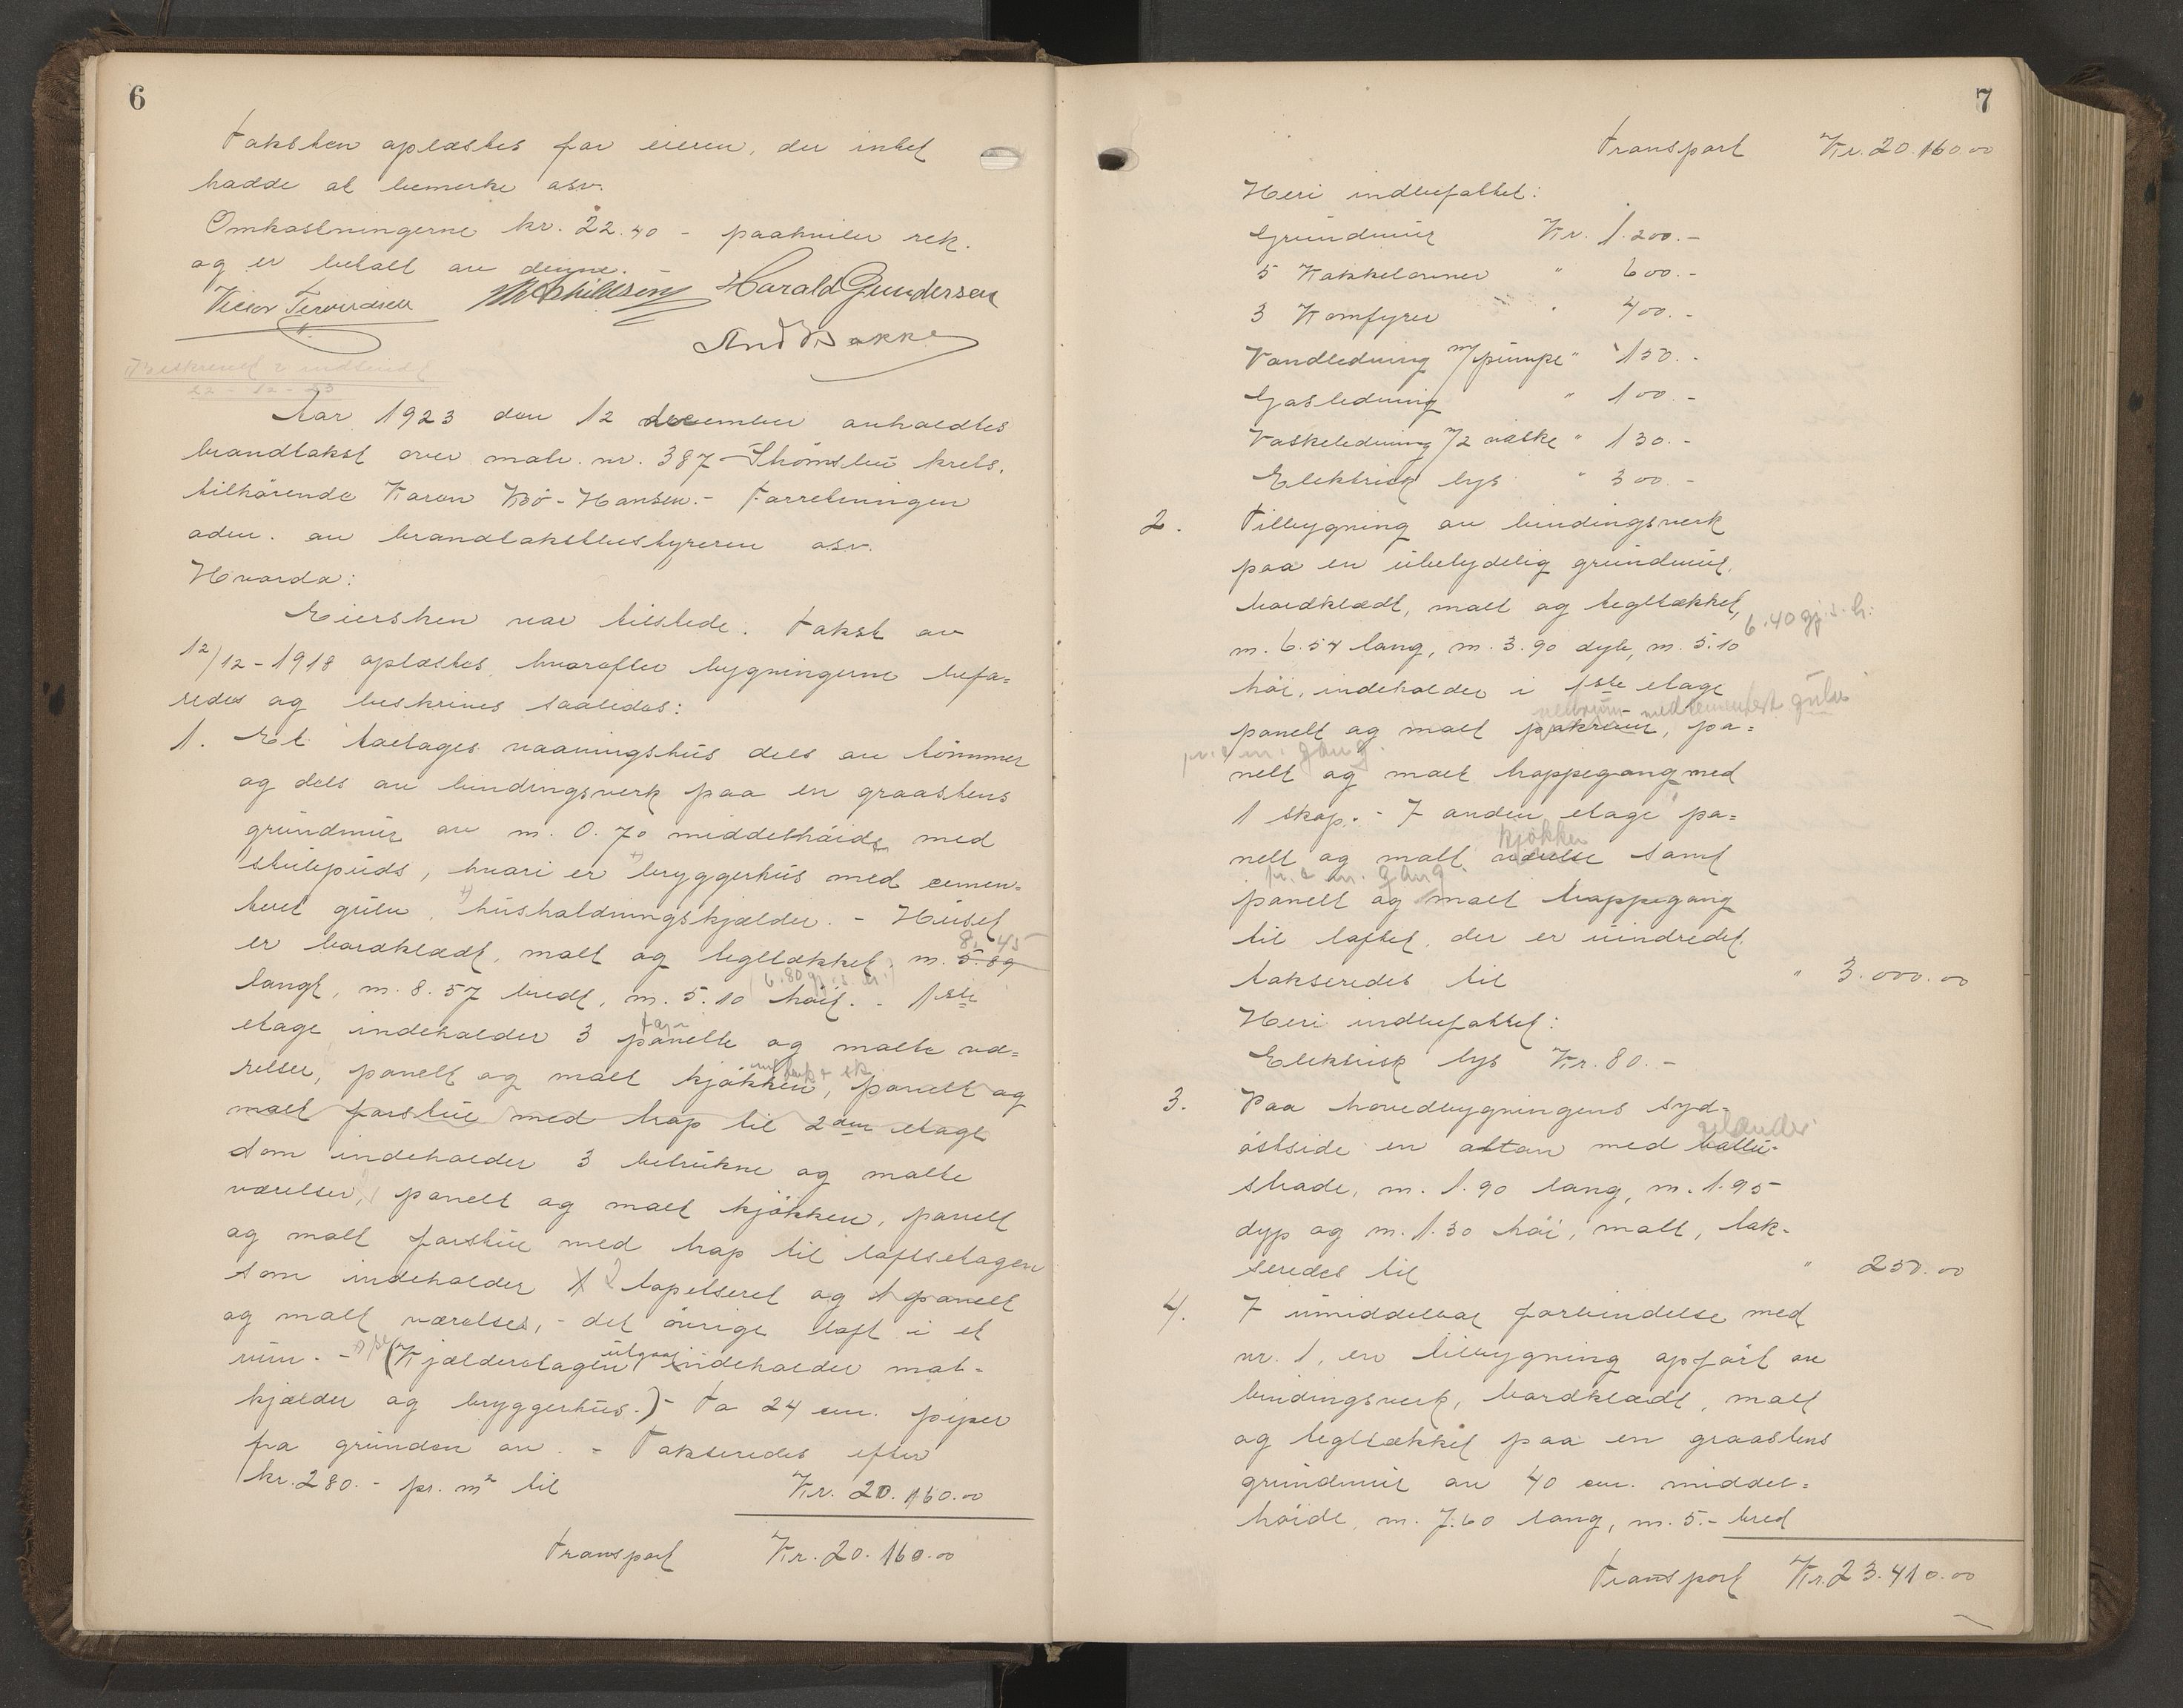 6
Taksten oplæstes for eieren, der intet
hadde at bemerke osv.
Omkostningerne kr. 22.40 - paahviler rek.
og er betalt av denne. -
Harald Gundersen
And Bakke
Beskrevet & indsendt
22-12-23
Aar 1923 den 12 december avholdtes
brandtakst over matr. nr. 387 Skomsbu krets.
tilhørende Karen Bø-Hansen. - Forretningen
adm. av brandtakstbestyreren osv.
Hvorda:
Eiersken var tilstede. Takst av
12/12-1918 oplæstes, hvorefter bygningerne befa=
redes og beskrives saaledes:
1. Et toetages vaaningshus dels av tømmer
og dels av bindingsverk paa en graastens
grundmur av m. 0.70 middelhøide med
slutepuds, hvori er bryggerhus med cemen=
teret gulv, husholdningskjælder. - Huset
8.45
er bordklædt, malt og tegltækket, m. 5.89
(6.80 gj.s.h.)
langt, m. 8.57 bredt, m. 5.10 høit. - 1ste
tap.
etage indeholder 3 panelte og malte væ=
relser, panelt og malt kjøkken, panelt og
malt forstue med trap til 2den etage
som indeholder 3 betrukne og malte
værelser, panelt og malt kjøkken, panelt
og malt forstue med trap til loftsetagen
som indeholder 1 2 tapetseret og 1 panelt
og malt værelser, - det øvrige loft i et
utgaar
rum. - (Kjælderetagen indeholder mat-
kjælder og bryggerhus.) - To 24 cm. piper
fra grunden av. - Takseredes efter
kr. 280.- pr. m² til Kr. 20.160.00
Transport Kr. 20.160.00
7
Transport Kr. 20.160.00
Heri indbefattet:
Grundmur Kr. 1.200.-
5 Kakkelovner " 600.-
3 Komfyrer " 400.-
Vandledning m/pumpe " 150.-
Gasledning " 100.-
Vaskeledning m/2 vaske " 130.-
Elektrisk lys " 300.-
2. Tilbygning av bindingsverk
paa en ubetydelig grundmur,
bordklædt, malt og tegltækket,
6.40 gj.s.h.
m. 6.54 lang, m. 3.90 dyb, m. 5.10
høi, indeholder i 1ste etage
med cementert gulv
panelt og malt pakrum, pa=
p. & m. gang.
nelt og malt trappegang med
1 skap. - I anden etage pa=
kjøkken
nelt og malt værelse samt
p. & m. gang
panelt og malt trappegang
til loftet, der er uindredet.
takseredes til " 3.000.00
Heri indbefattet:
Elektrisk lys Kr. 80.-
3. Paa hovedbygningens syd-
gelænder
østside en altan med ballu-
strade, m. 1.90 lang, m. 1.95
dyp og m. 1.30 høi, malt, tak-
seredes til " 250.00
4. I umiddelbar forbindelse med
nr. 1, en tilbygning opført av
bindingsverk, bordklædt, malt
og tegltækket paa en graastens
grundmur av 40 cm. middel=
høide, m. 7.60 lang, m. 5.- bred
Transport Kr. 23.410.00